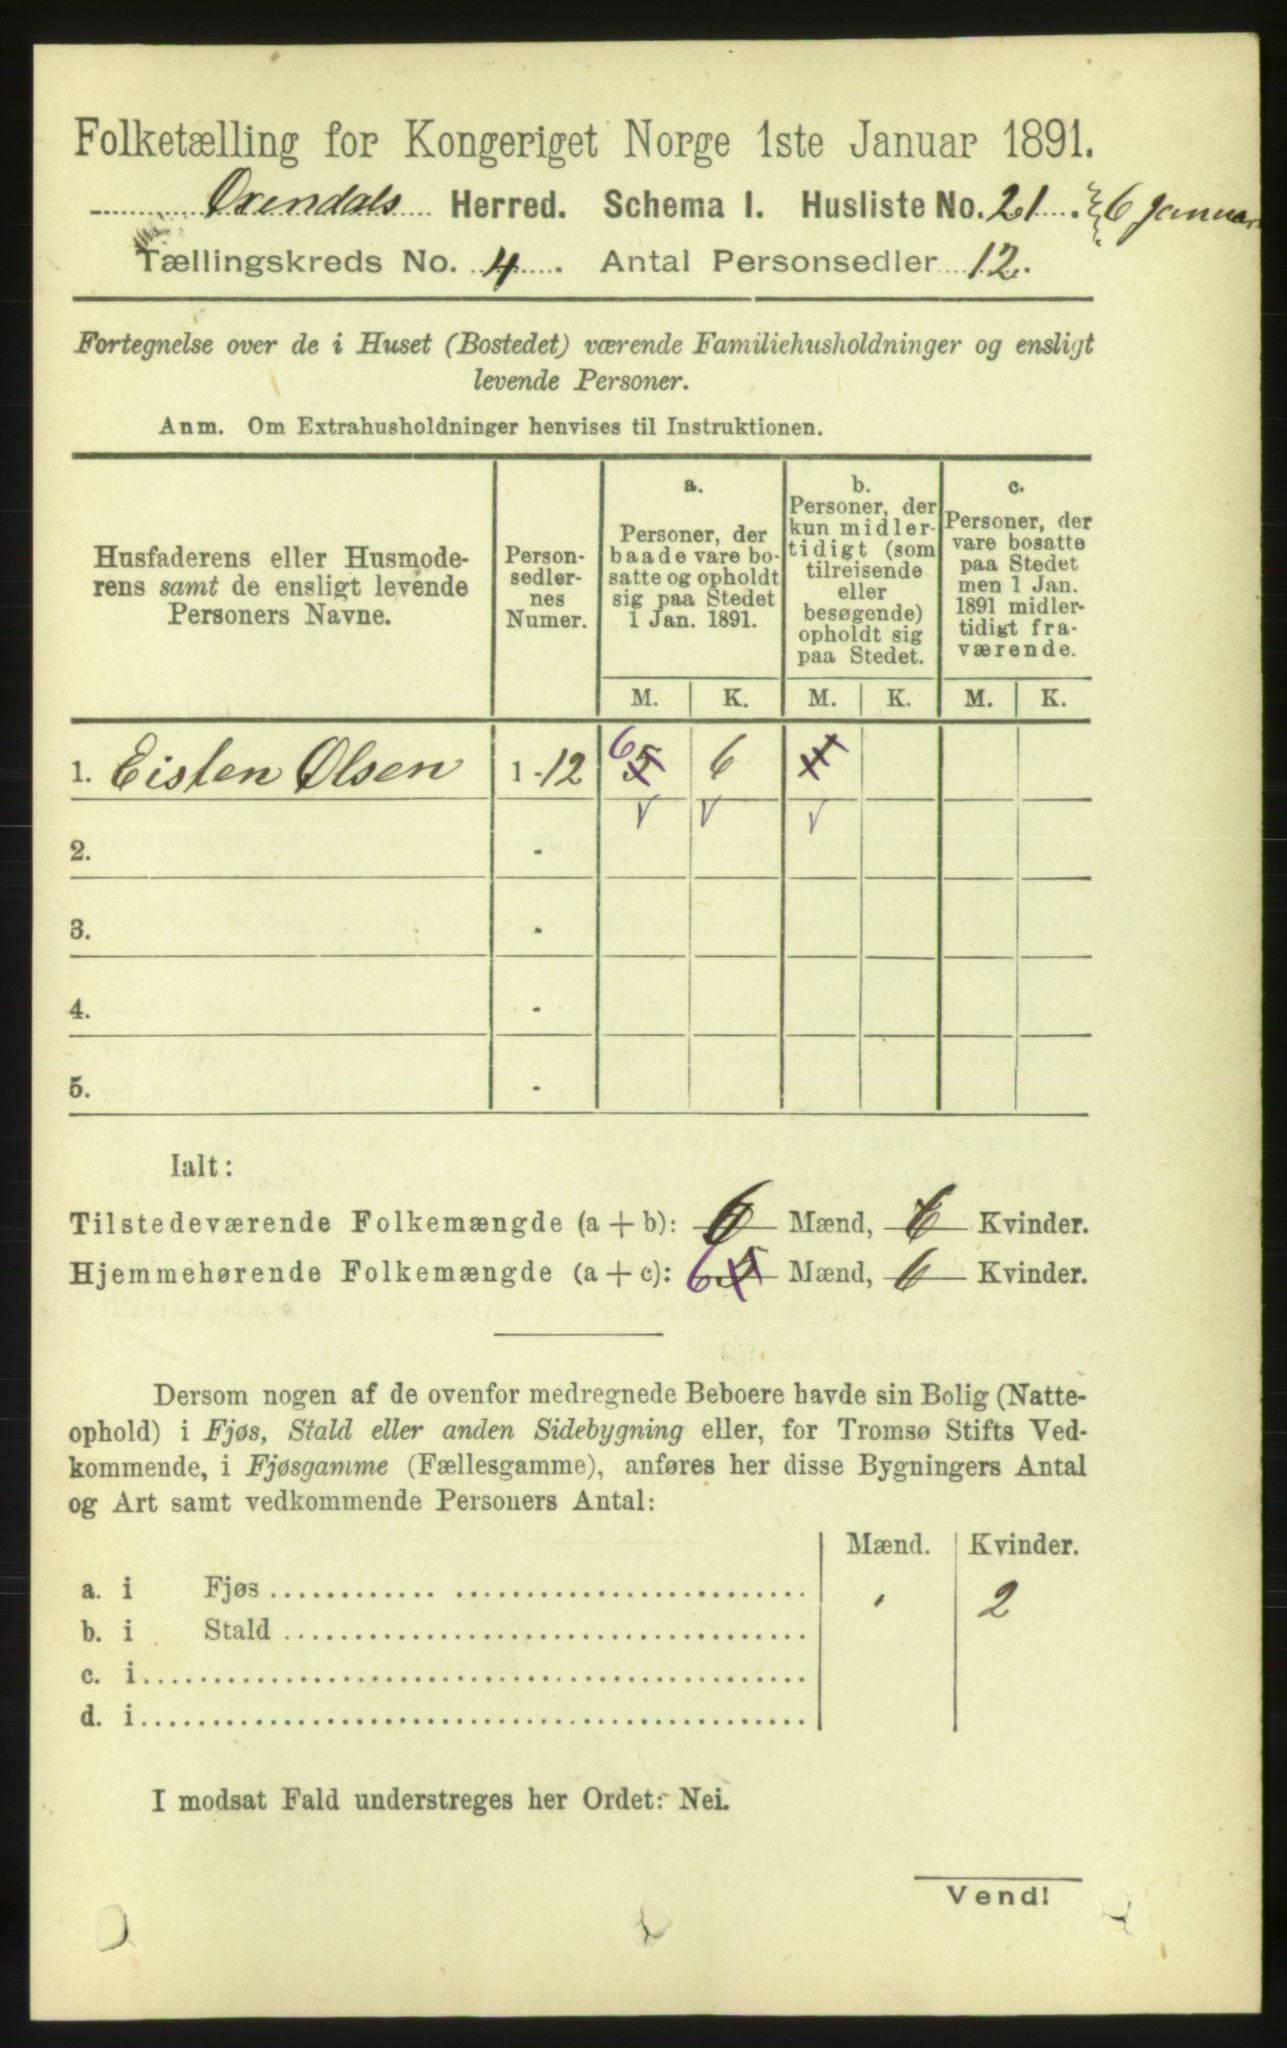 Folketælling for Kongeriget Norge 1ste Januar 1891.
Øxendals Herred. Schema I. Husliste No. 21. 6 Januar
Tællingskreds No. 4. Antal Personsedler 12.
Fortegnelse over de i Huset (Bostedet) værende Familiehusholdninger og ensligt
levende Personer.
Anm. Om Extrahusholdninger henvises til Instruktionen.
Husfaderens eller Husmode-
rens samt de ensligt levende
Personers Navne.
Person-
sedler-
nes
Numer.
a.
Personer, der
baade vare bo-
satte og opholdt
sig paa Stedet
1 Jan. 1891.
b.
Personer, der
kun midler-
tidigt (som
tilreisende
eller
besøgende)
opholdt sig
paa Stedet.
c.
Personer, der
vare bosatte
paa Stedet
men 1 Jan.
1891 midler-
tidigt fra-
værende.
M. K. M. K. M. K.
1. Eisten Olsen 1-12 6 5 6 1
2. -
3. -
4. -
5. -
Ialt:
Tilstedeværende Folkemængde (a + b): 6 Mænd, 6 Kvinder.
Hjemmehørende Folkemængde (a + c): 6 5 Mænd, 6 Kvinder.
Dersom nogen af de ovenfor medregnede Beboere havde sin Bolig (Natte-
ophold) i Fjøs, Stald eller anden Sidebygning eller, for Tromsø Stifts Ved-
kommende, i Fjøsgamme (Fællesgamme), anføres her disse Bygningers Antal
og Art samt vedkommende Personers Antal:
Mænd. Kvinder.
a. i Fjøs 2
b. i Stald
c. i
d. i
I modsat Fald understreges her Ordet: Nei.
Vend!